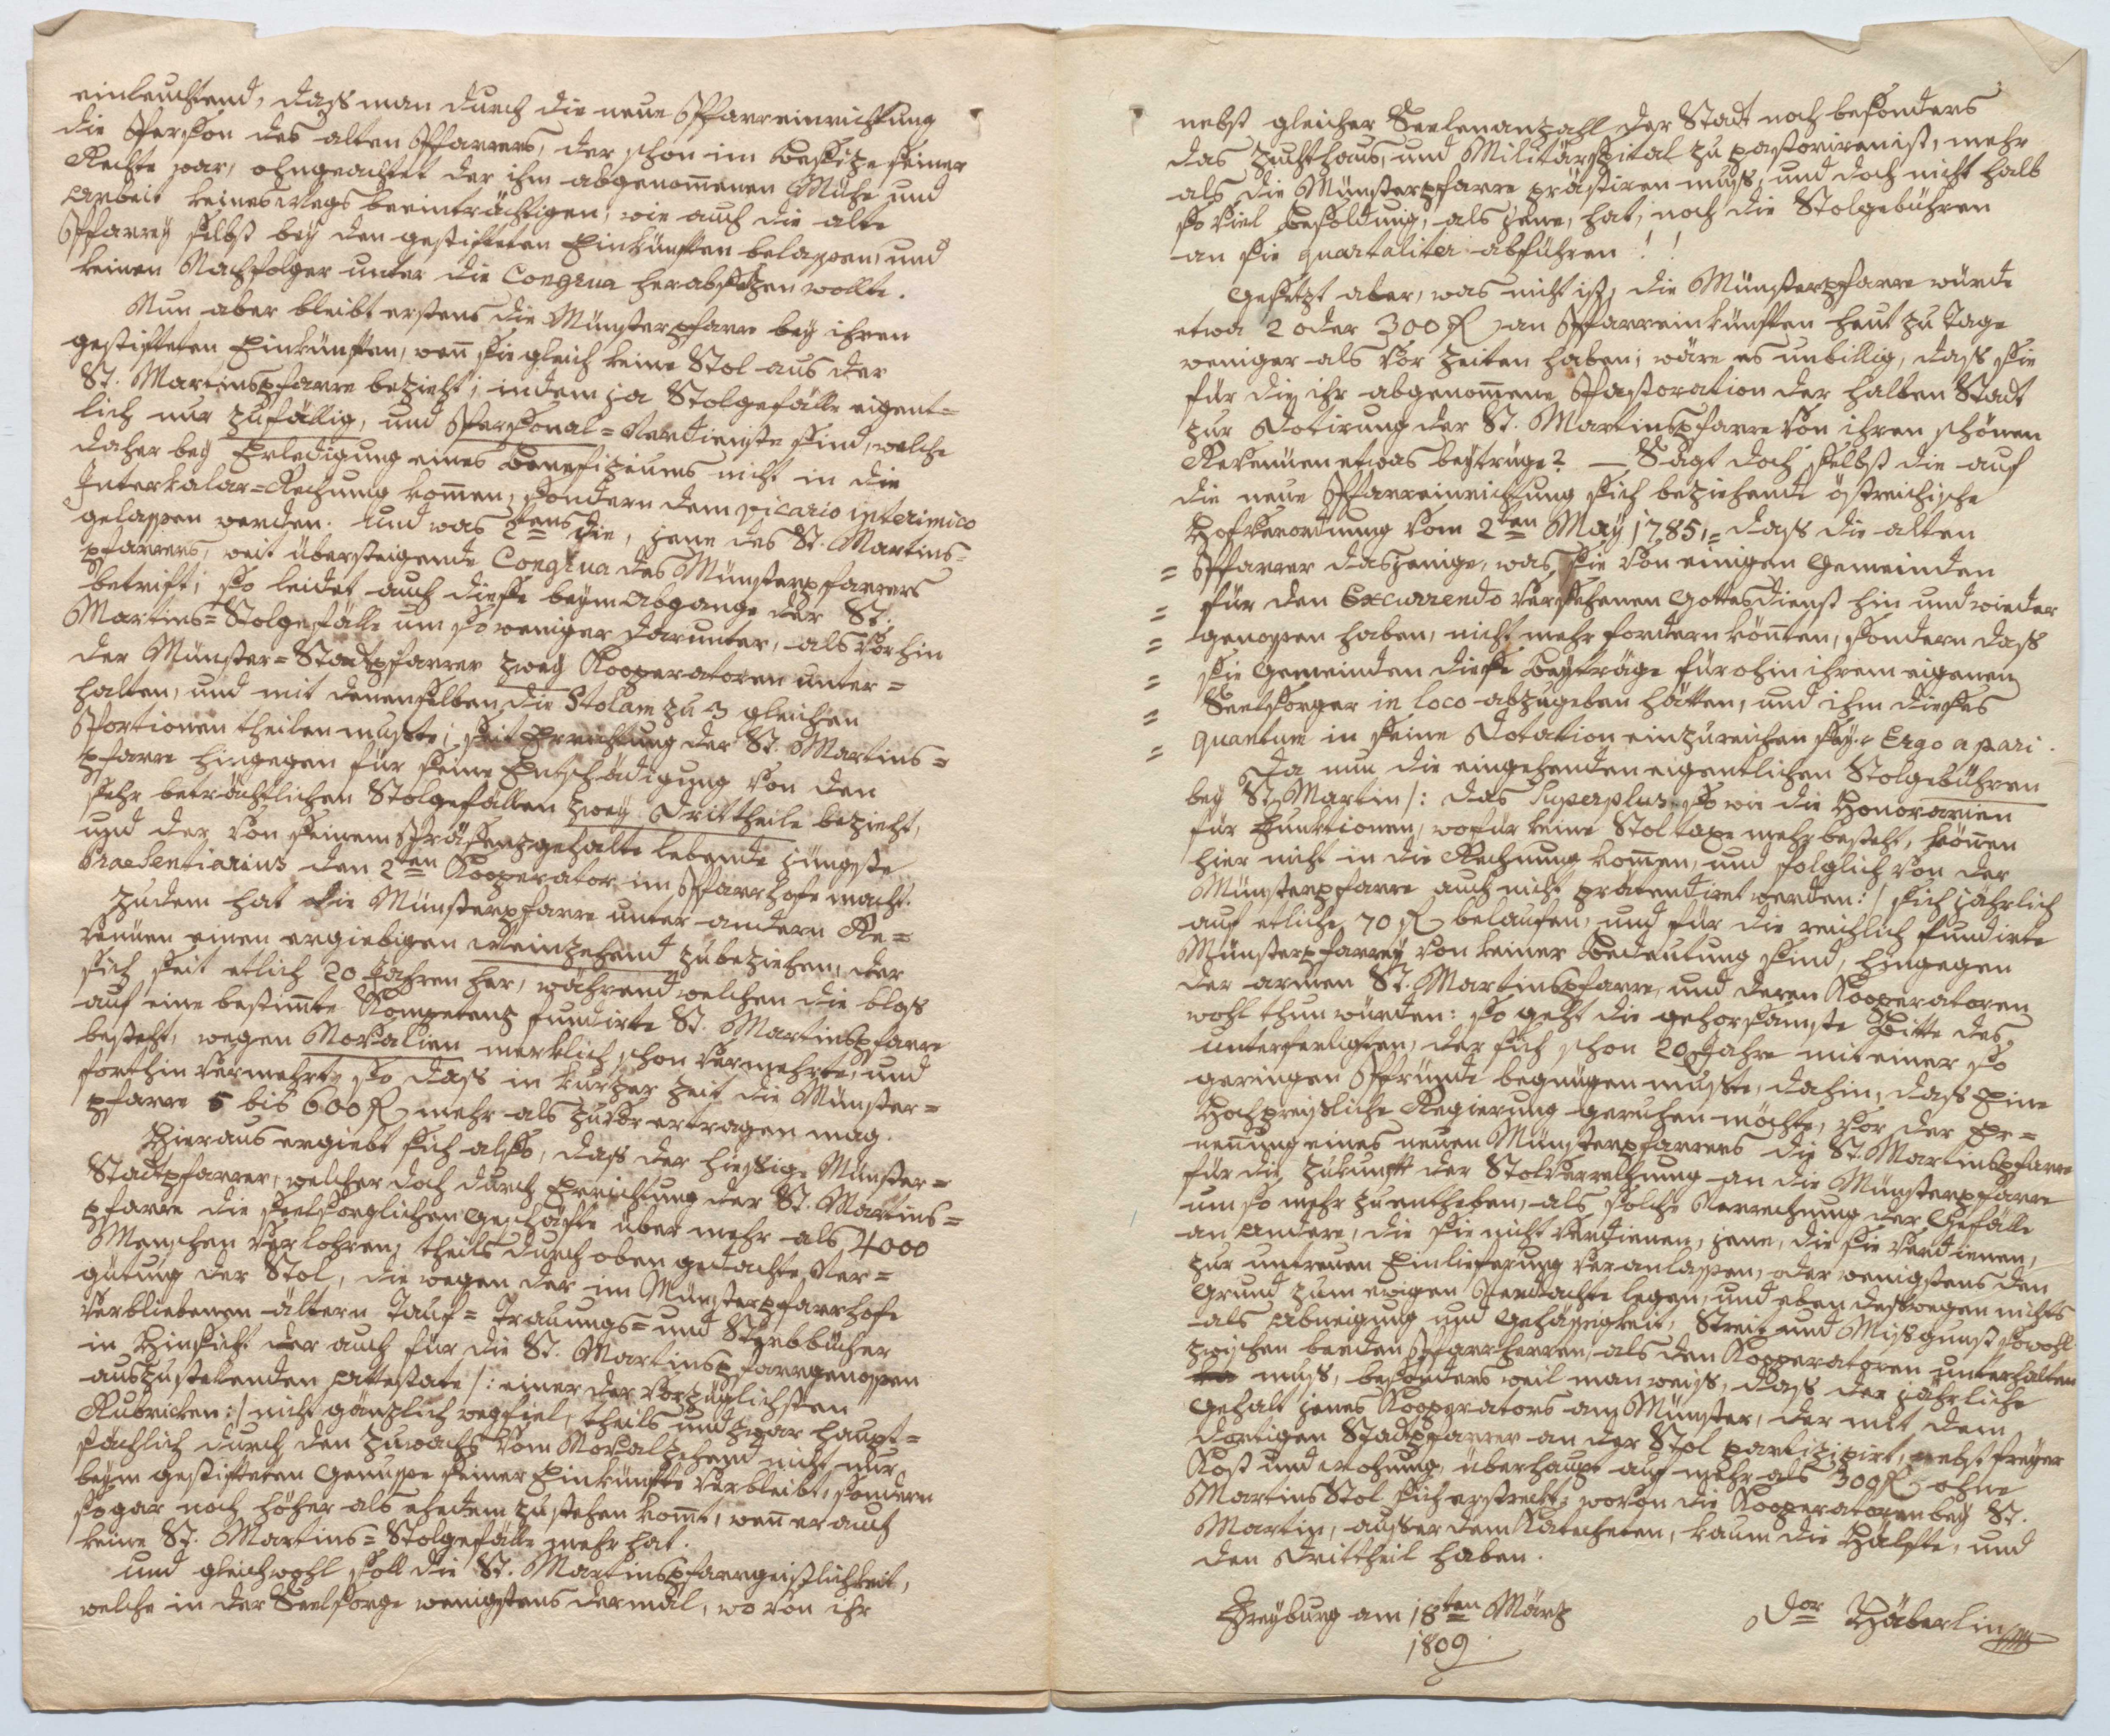 einleuchtend, daß man durch die neue Pfarreinrichtung
die Person des alten Pfarrers, der schon im Besitze seiner
Rechte war, ohngeachtet der ihm abgenom̅enen Mühe und
Arbeit keineswegs beeinträchtigen, wie auch die alte
Pfarrey selbst bey den gestifteten Einkünften belassen, und
keinen Nachfolger unter die Congrua herabsetzen wollte.
Nun aber bleibt erstens die Münsterpfarre bey ihren
gestifteten Einkünften, wen̅ sie gleich keine Stol aus der
St. Martinspfarre bezieht; indem ja Stolgefälle eigent=
lich nur zufällig, und Personal=Verdienste sind, welche
daher bey Erledigung eines Benefiziums nicht in die
Interkalar=Rechnung kom̅en, sondern dem vicario interimico
gelassen werden. Und was 2tens die, jene des St. Martins=
pfarrers, weit übersteigende Congrua des Münsterpfarrers
betrift; so leidet auch diese beym Abgange der St.
Martins=Stolgefälle um so weniger darunter, als vorhin
der Münster=Stadtpfarrer zwey Kooperatoren unter=
halten, und mit denenselben die Stolam zu 3 gleichen
Portionen theilen mußte; seit Errichtung der St. Martins=
pfarre hingegen für seine Entschädigung von den
sehr beträchtlichen Stolgefällen zwey Drittheile bezieht,
und der von seinem Präsenzgehalte lebende jüngste
Praesentiarius den 2ten Kooperator im Pfarrhofe macht.
Zudem hat die Münsterpfarre unter andern Re=
venüen einen ergiebigen Weinzehend zubeziehen, der
sich seit etlich 20 Jahren her, während welchen die blos
auf eine bestim̅te Kompetenz fundirte St. Martinspfarre
besteht, wegen Novalien merklich schon vermehrte, und
forthin vermehrt, so daß in kurzer Zeit die Münster=
pfarre 5 bis 600 f mehr als zuvor ertragen mag.
Hieraus ergiebt sich also, daß der hiesige Münster=
Stadtpfarrer, welcher doch durch Errichtung der St. Martins=
pfarre die seelsorglichen Geschäfte über mehr als 4000
Menschen verlohren, theils durch oben gedachte Ver=
gütung der Stol, die wegen der im Münsterpfarrhofe
verbliebenen ältern Tauf= Trauungs= und Sterbbücher
in Hinsicht der auch für die St. Martinspfarrgenossen
auszustellenden Attestate /: einer der vorzüglichsten
Rubricken :/ nicht gänzlich wegfiel, theils und zwar haupt=
sächlich durch den Zuwachs vom Novalzehend nicht nur
beym gestifteten Genusse seiner Einkünfte verbleibt, sondern
sogar noch höher als ehedem zustehen kom̅t, wen̅ er auch
keine St. Martins=Stolgefälle mehr hat.
Und gleichwohl soll die St. Martinspfarrgeistlichkeit,
welche in der Seelsorge wenigstens dermal, wo von ihr
nebst gleicher Seelenanzahl der Stadt noch besonders
das Zuchthaus, und Militärspital zu pastoriren ist, mehr
als die Münsterpfarre prästiren muß, und doch nicht halb
so viel Besoldung, als jene, hat, noch die Stolgebühren
an sie quartaliter abführen!!
Gesetzt aber, was nicht ist, die Münsterpfarre würde
etwa 2 oder 300 f an Pfarreinkünften heut zu Tage
weniger als vor Zeiten haben; wäre es unbillig, daß sie
für die ihr abgenom̅ene Pastoration der halben Stadt
zur Dotirung der St. Martinspfarre von ihren schönen
Revenüen etwas beytrüge? — Sagt doch selbst die auf
die neue Pfarreinrichtung sich beziehende östreichische
Hofverordnung vom 2ten May 1785, = daß die alten
= Pfarrer dasjenige, was sie von einigen Gemeinden
= für den Excurrendo versehenen Gottesdienst hin und wieder
= genossen haben, nicht mehr fordern kön̅ten, sondern daß
= die Gemeinden diese Beyträge fürohin ihrem eigenen
= Seelsorger in loco abzugeben hätten, und ihm dieses
= quantum in seine Dotation einzureichen sey. = Ergo a pari.
Da nun die eingehenden eigentlichen Stolgebühren
bey St. Martin /: das Superplus so wie die Honorarien
für Funktionen, wofür keine Stoltaxe mehr besteht, kön̅en
hier nicht in die Rechnung kom̅en, und folglich von der
Münsterpfarre auch nicht prätendirt werden :/ sich jährlich
auf etliche 70 f belaufen, und für die reichlich fundirte
Münsterpfarrey von keiner Bedeutung sind, hingegen
der armen St. Martinspfarre, und deren Kooperatoren
wohl thun würden: so geht die gehorsamste Bitte des
Unterfertigten, der sich schon 20 Jahre mit einer so
geringen Pfründe begnügen mußte, dahin, daß Eine
Hochpreißliche Regierung geruhen möchte, vor der Er=
nen̅ung eines neuen Münsterpfarrers die St. Martinspfarre
für die Zukunft der Stolverrechnung an die Münsterpfarre
um so mehr zuentheben, als solche Verrechnung der Gefälle
an Andere, die sie nicht verdienen, jene, die sie verdienen,
zur untreuen Einlieferung veranlassen, oder wenigstens den
Grund zum ewigen Verdachte legen, und eben deßwegen nichts
als Abneigung und Gehässigkeit, Streit und Mißgunst sowohl
zwischen beeden Pfarrherren, als den Kooperatoren unterhalten
muß, besonders weil man weiß, daß der jährliche
Gehalt jenes Kooperators am Münster, der mit dem
dortigen Stadtpfarrer an der Stol partizipirt, nebst freyer
Kost und Wohnung, überhaupt auf mehr als 300 f ohne
Martins Stol sich erstreckt; wovon die Kooperatoren bey St.
Martin, ausser dem Katecheten, kaum die Hälfte, und
den Drittheil haben.
Freyburg am 18ten März
1809
Dor Häberlin